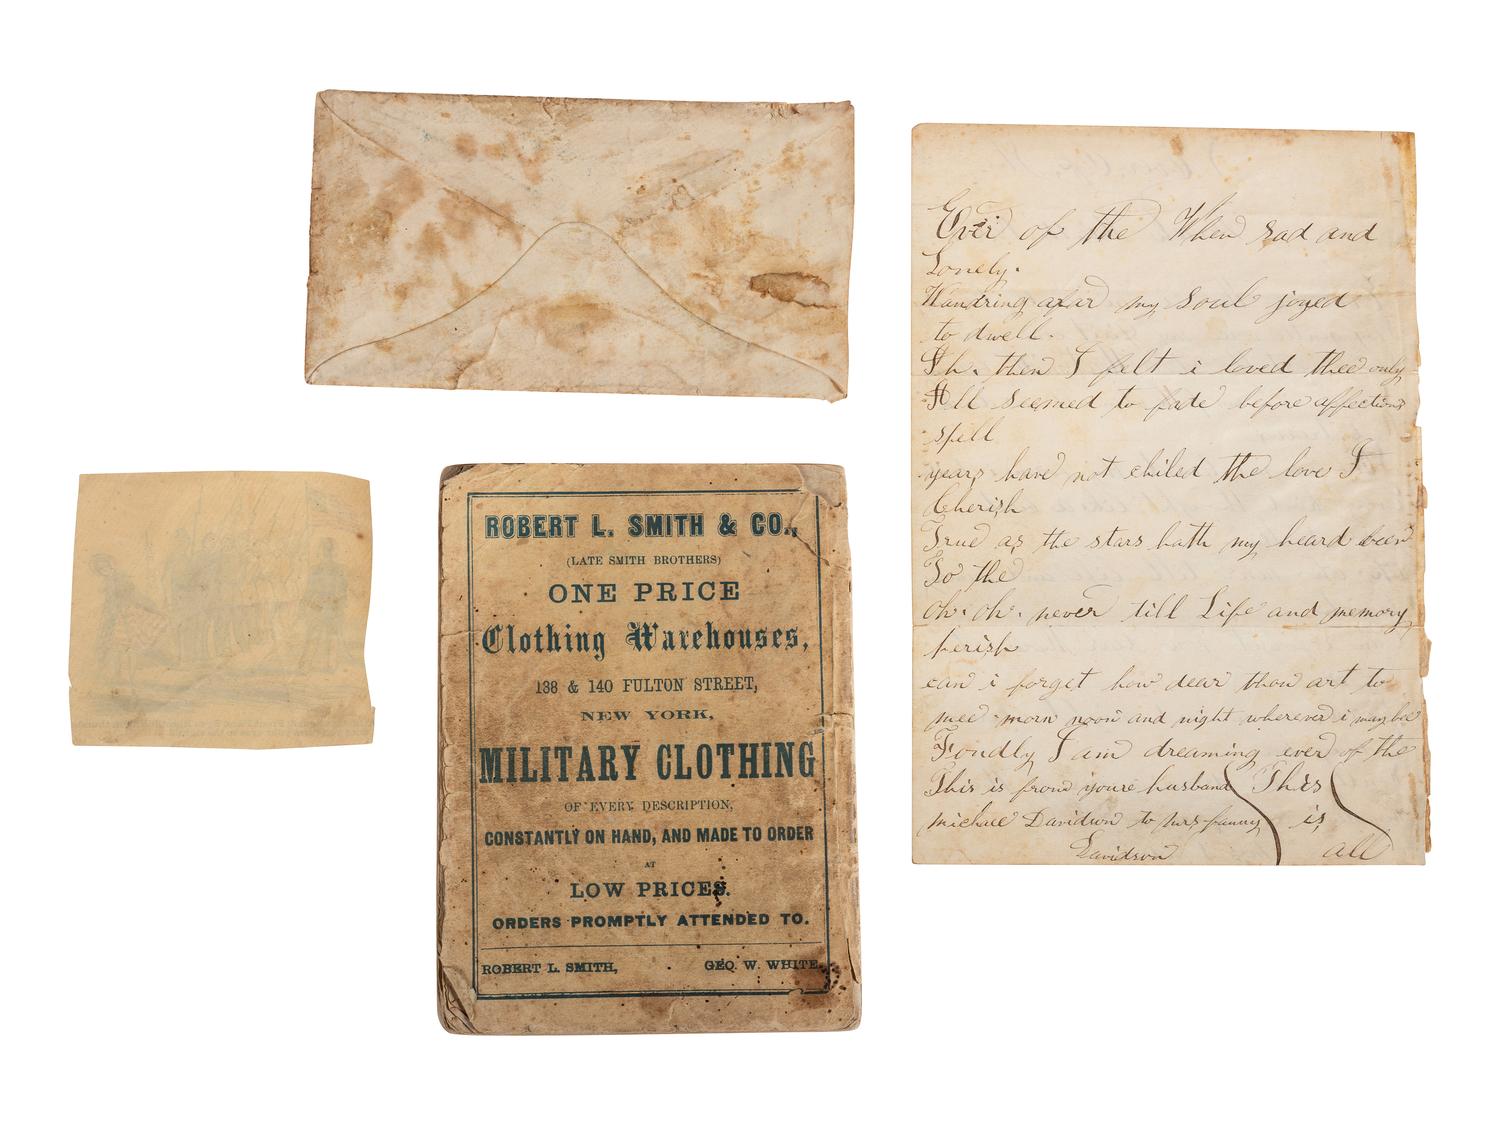 ROBERT L. SMITH & CO.,
(LATE SMITH BROTHERS)
ONE PRICE
Clothing Warehouses,
138 & 140 FULTON STREET,
NEW YORK,
MILITARY CLOTHING
OF EVERY DESCRIPTION,
CONSTANTLY ON HAND, AND MADE TO ORDER
AT
LOW PRICES.
ORDERS PROMPTLY ATTENDED TO.
ROBERT L. SMITH, GEO. W. WHITE
Ever of the When sad and
Lonely.
Wandring afar my soul joyed
to dwell.
Ah. then I felt i loved thee only
All seemed to fade before affections
spell
years have not chiled the love I
Cherish
True as the stars hath my heard been
To the
oh. oh. never till Life and memory
perish
can i forget how dear thou art to
mee morn noon and night wherever i may bee
Fondly I am dreaming ever of the
This is from youre husband This
michael Davidson to mrs fanny is
Davidson all